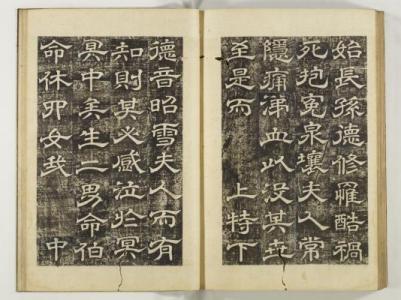 始長孫德修罹酷禍
死抱冤泉壤夫人常
隱痛涕血以没其世
至是而 上特下
德音昭雪夫人而有
知則其必感泣於冥
冥中矣生二男命伯
命休 女我 中